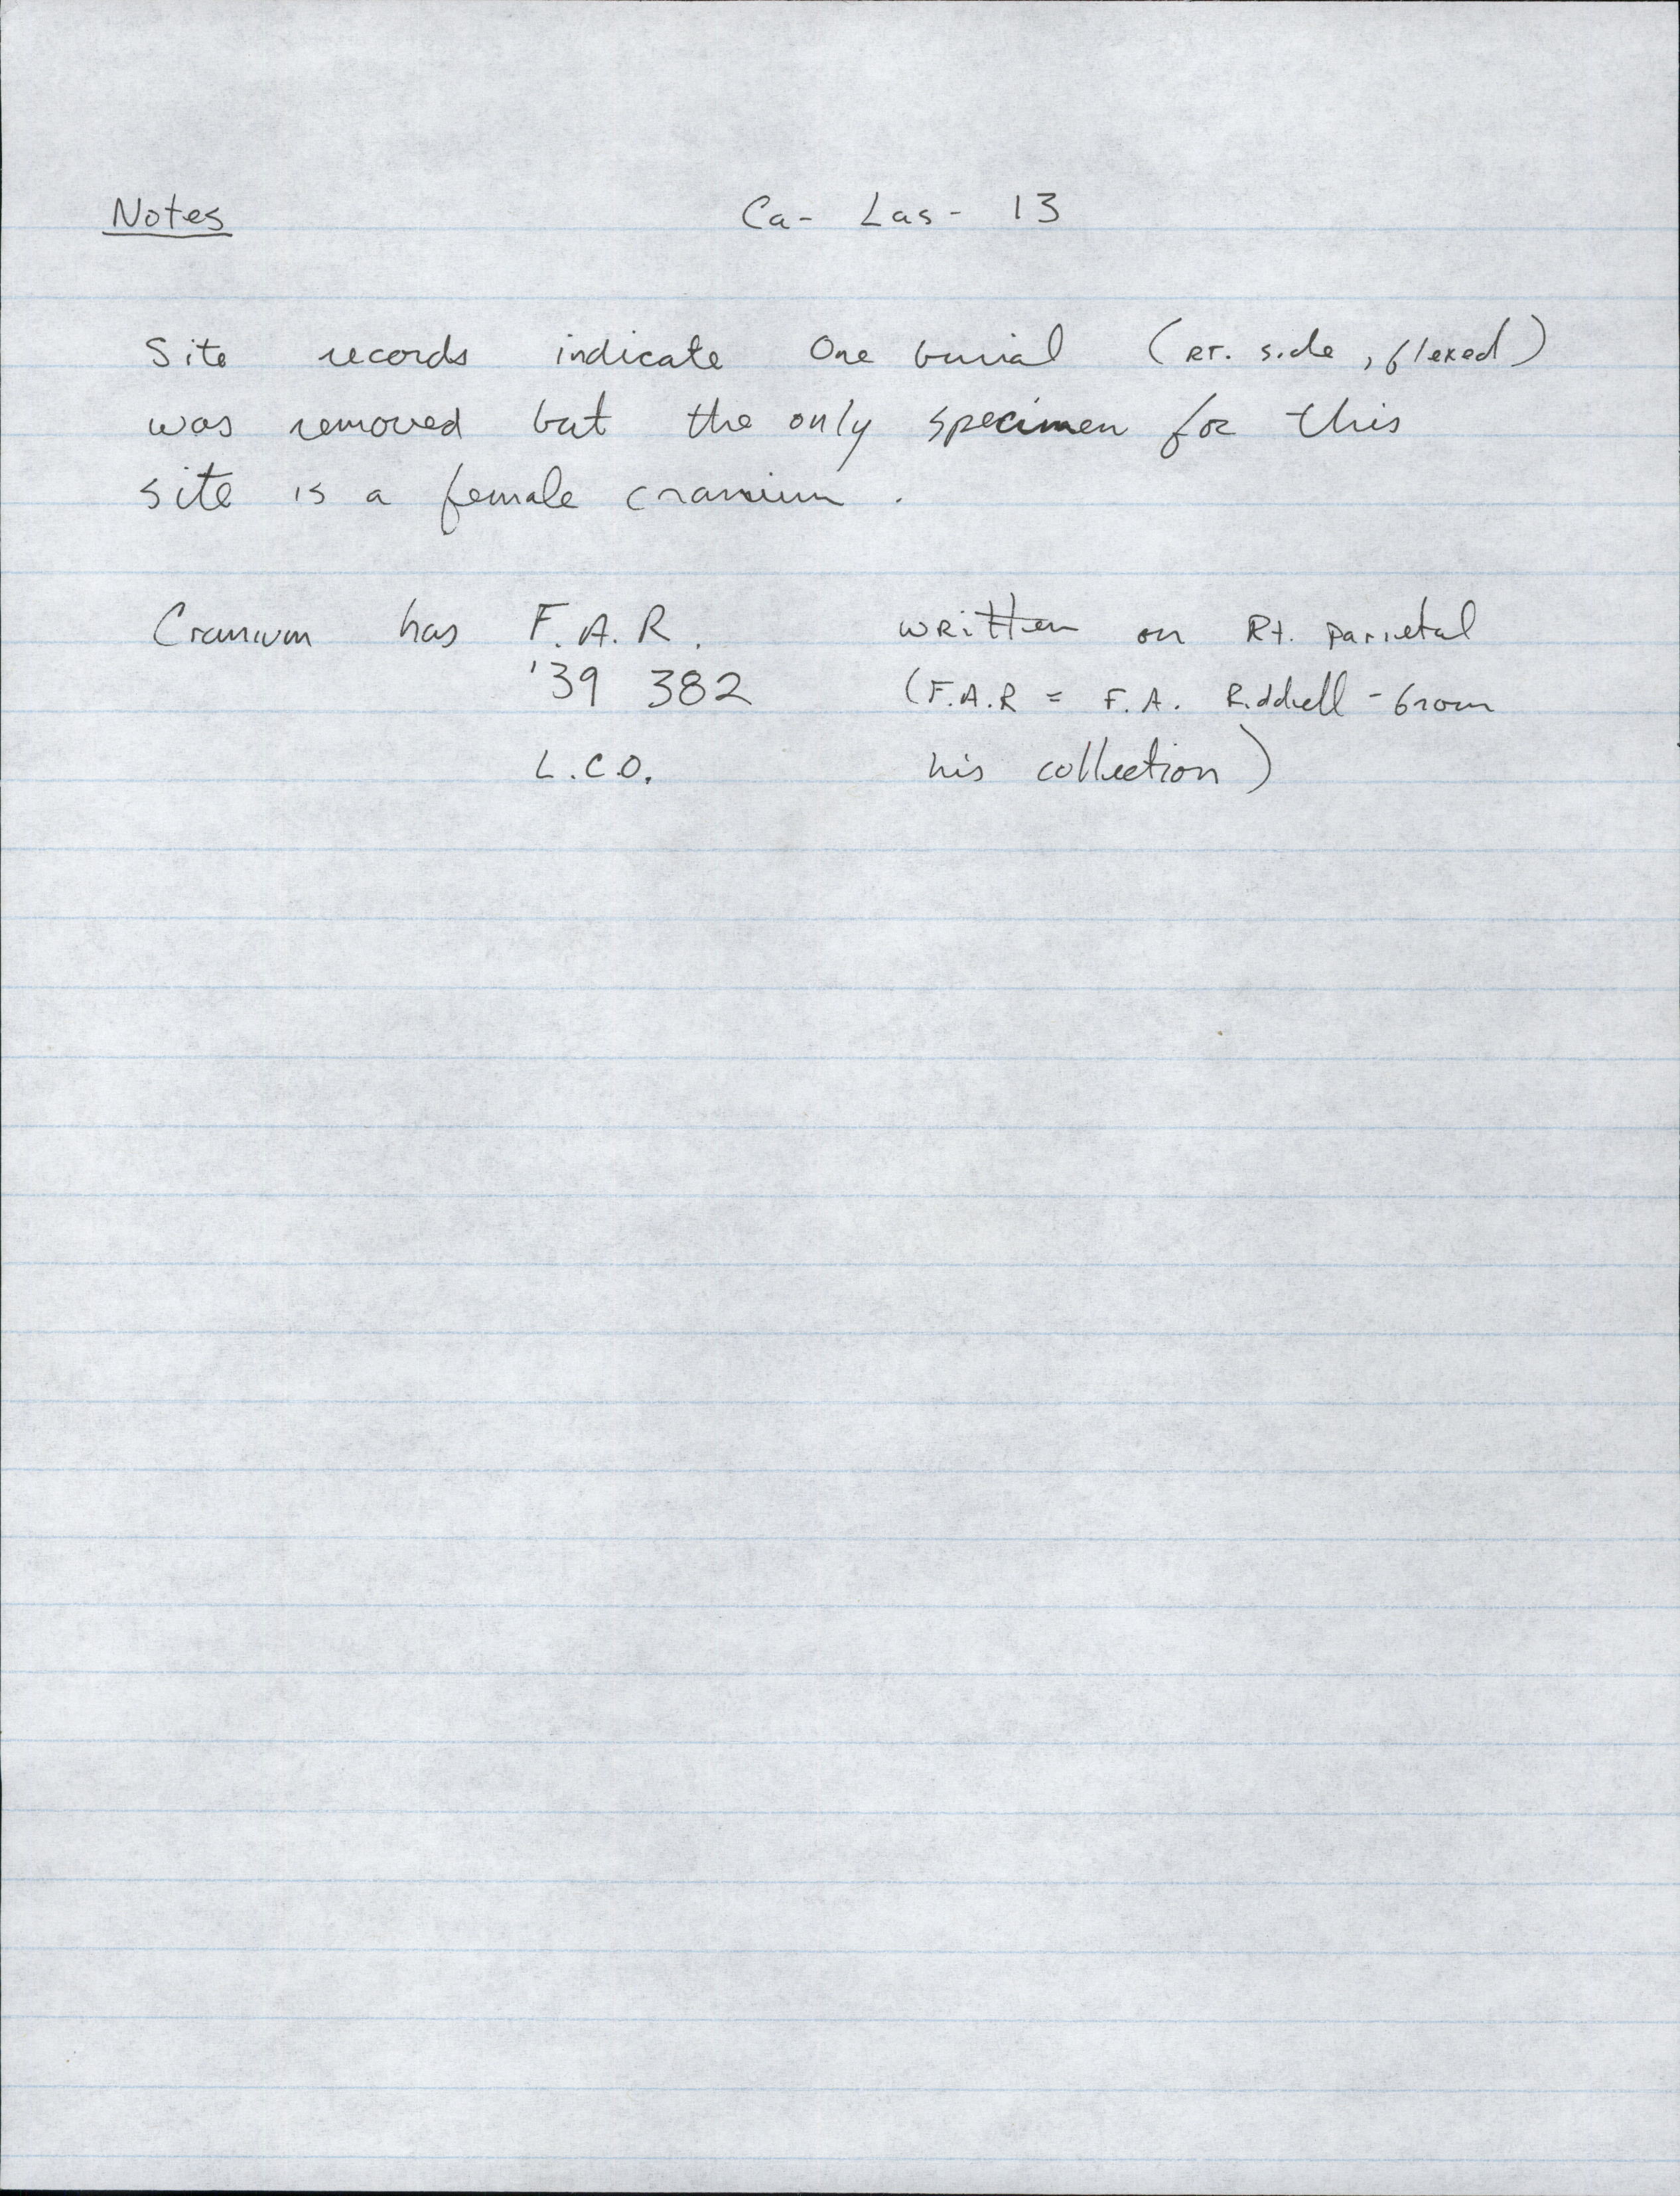 Notes Ca- Las- 13
Site records indicate One burial (RT. side, flexed)
was removed but the only specimen for this
site is a female cranium.
Cranium has F.A.R. written on Rt. parietal
'39 382 (F.A.R = F.A. Riddell - from
L.C.O. his collection)